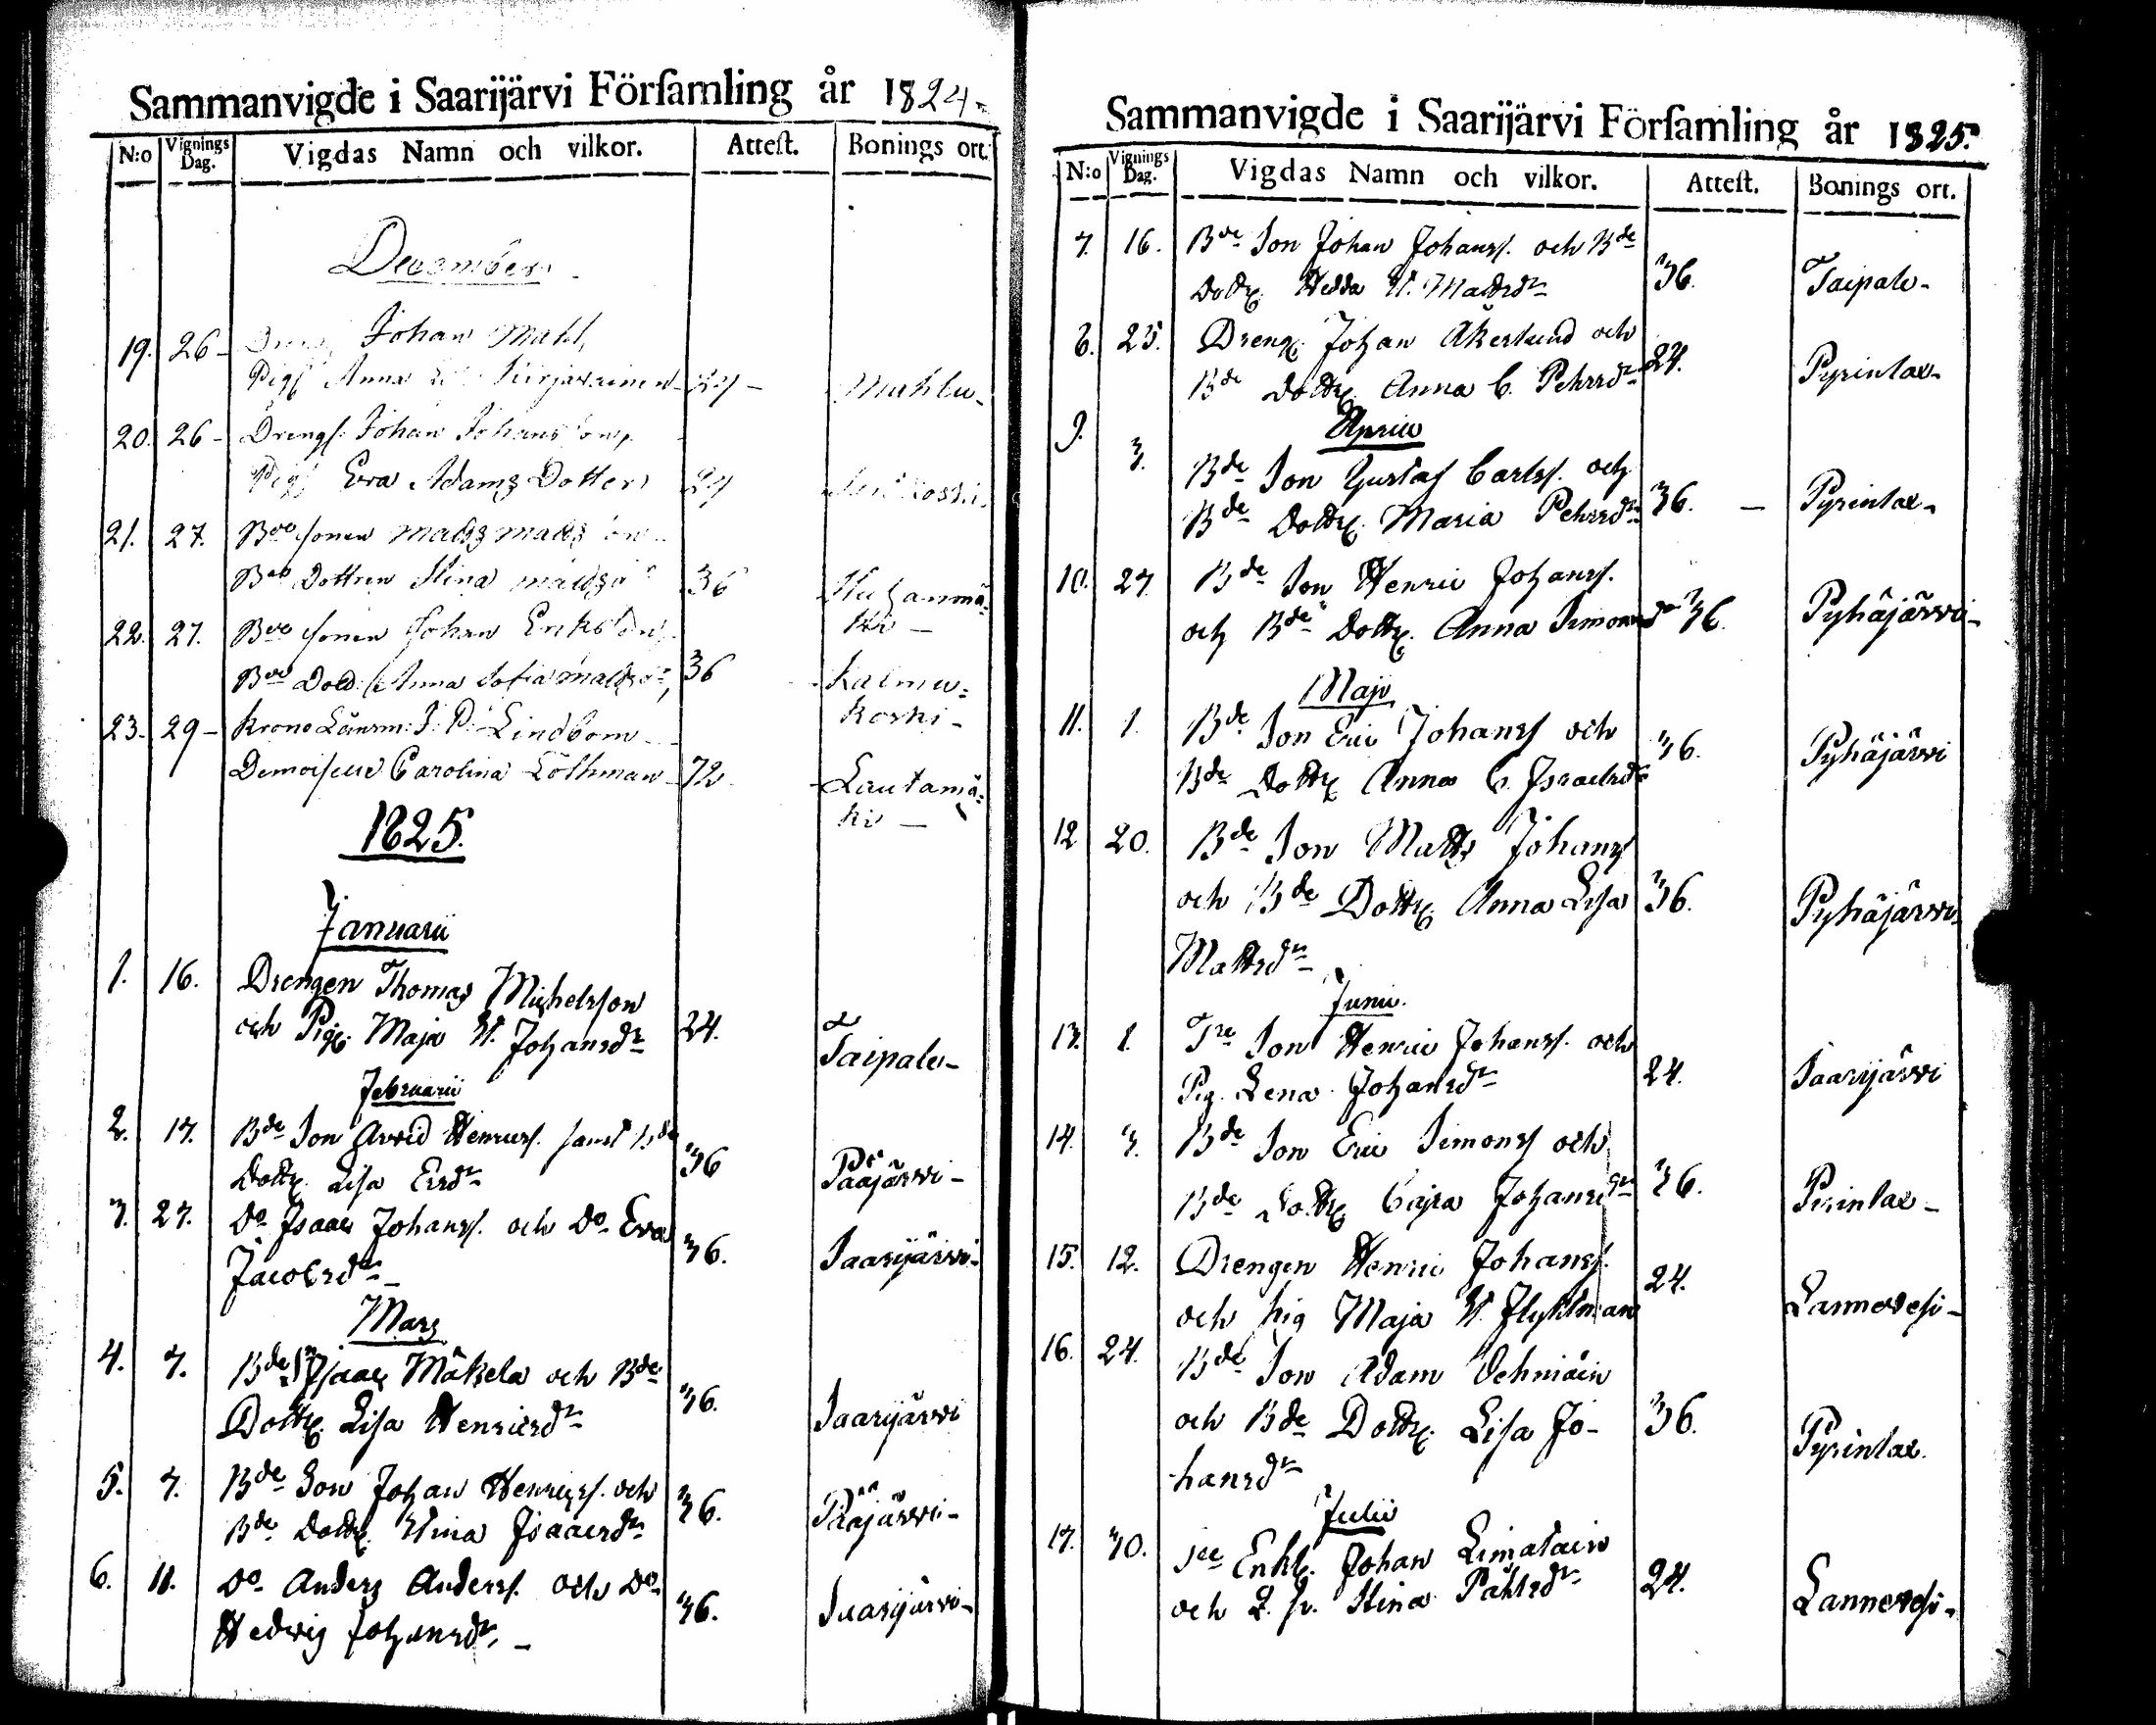 Sammanvigde i Saarijärvi Förſamling år 1824
N:o Vignings Dag. Vigdas Namn och vilkor. Atteſt. Bonings ort.
December
19. 26 Johan Mahl,
Pig Anna 24 Mahlu
20. 26 Drengs. Johan Johansson,
Pig Eva Adams Dotter 24
21. 27. Bde sonen Matts Matts son
Bde Dottren Stina Mattsd 36
22. 27. Bde sonen Johan Erikson ki
Bde Dott. Anna Sofia Mattsdr, 36 Kalmu=
koski
23. 29 Krono Länsm: J. P. Lindbom
Demoiselle Carolina Löthman 72 Lautamä=
ki
1825.
Januarii
1. 16. Drengen Thomas Michelsson
och Pig. Maja St. Johansdr 24. Taipale
Februarii
2. 13. Bde Son Arvid Henricss. samt Bde
Dottr. Lisa Ersdr 36 Pääjärvi
3. 27. Do Isaac Johanss. och Do Eva
Jacobsdr 36. Saarijärvi
Mars
4. 3. Bde Sn Isaac Mäkelä och Bde
Dottr. Lisa Henricsdr 36. Saarijärvi
5. 3. Bde Son Johan Henricss. och
Bde Dottr. Stina Isaacsdr 36. Pääjärvi
6. 11. Do Anders Anderss. och Do
Hedvig Johansdr. 36. Saarijärvi
Sammanvigde i Saarijärvi Förſamling år 1825.
N:o Vignings Dag. Vigdas Namn och vilkor. Atteſt. Bonings ort.
7. 16. Bde Son Johan Johanss. och Bde
Dottr. Hedda St. Mattsdr 36. Taipale
8. 25. Dreng. Johan Åkerlund och
Bde Dottr. Anna C. Pehrsdr 24. Pyrintax
Aprill
9. 3. Bde Son Gustaf Carlss. och
Bde Dottr. Maria Pehrsdr 36. Pyrintax
10. 27. Bde Son Henric Johanss.
och Bde Dottr. Anna Simonsdr 36. Pyhäjärvi
Maji
11. 1. Bde Son Eric Johanss och
Bde Dottr Anna C. Israelsdr 36. Pyhäjärvi
12 20. Bde Son Matts Johanss
och Bde Dottr. Anna Lisa 36. Pyhäjärvi
Mattsdr
Junii.
13. 1. Tre Son Henric Johanss. och
Pig. Lena Johansdr 24. Saarijärvi
14. 3. Bde Son Eric Simonss och
Bde Dottr Cajsa Johansdr 36. Pirintax
15. 12. Drengen Henric Johanss.
och pig Maja St. Flyktman 24. Lannevesi
16. 24. Bde Son Adam Vehniäin
och Bde Dottr. Lisa Jo- 36. Pyrintax.
hansdr
Julii
17. 30. Enkl. Johan Limatain
och Stina Påhlsdr 24. Lannevesi